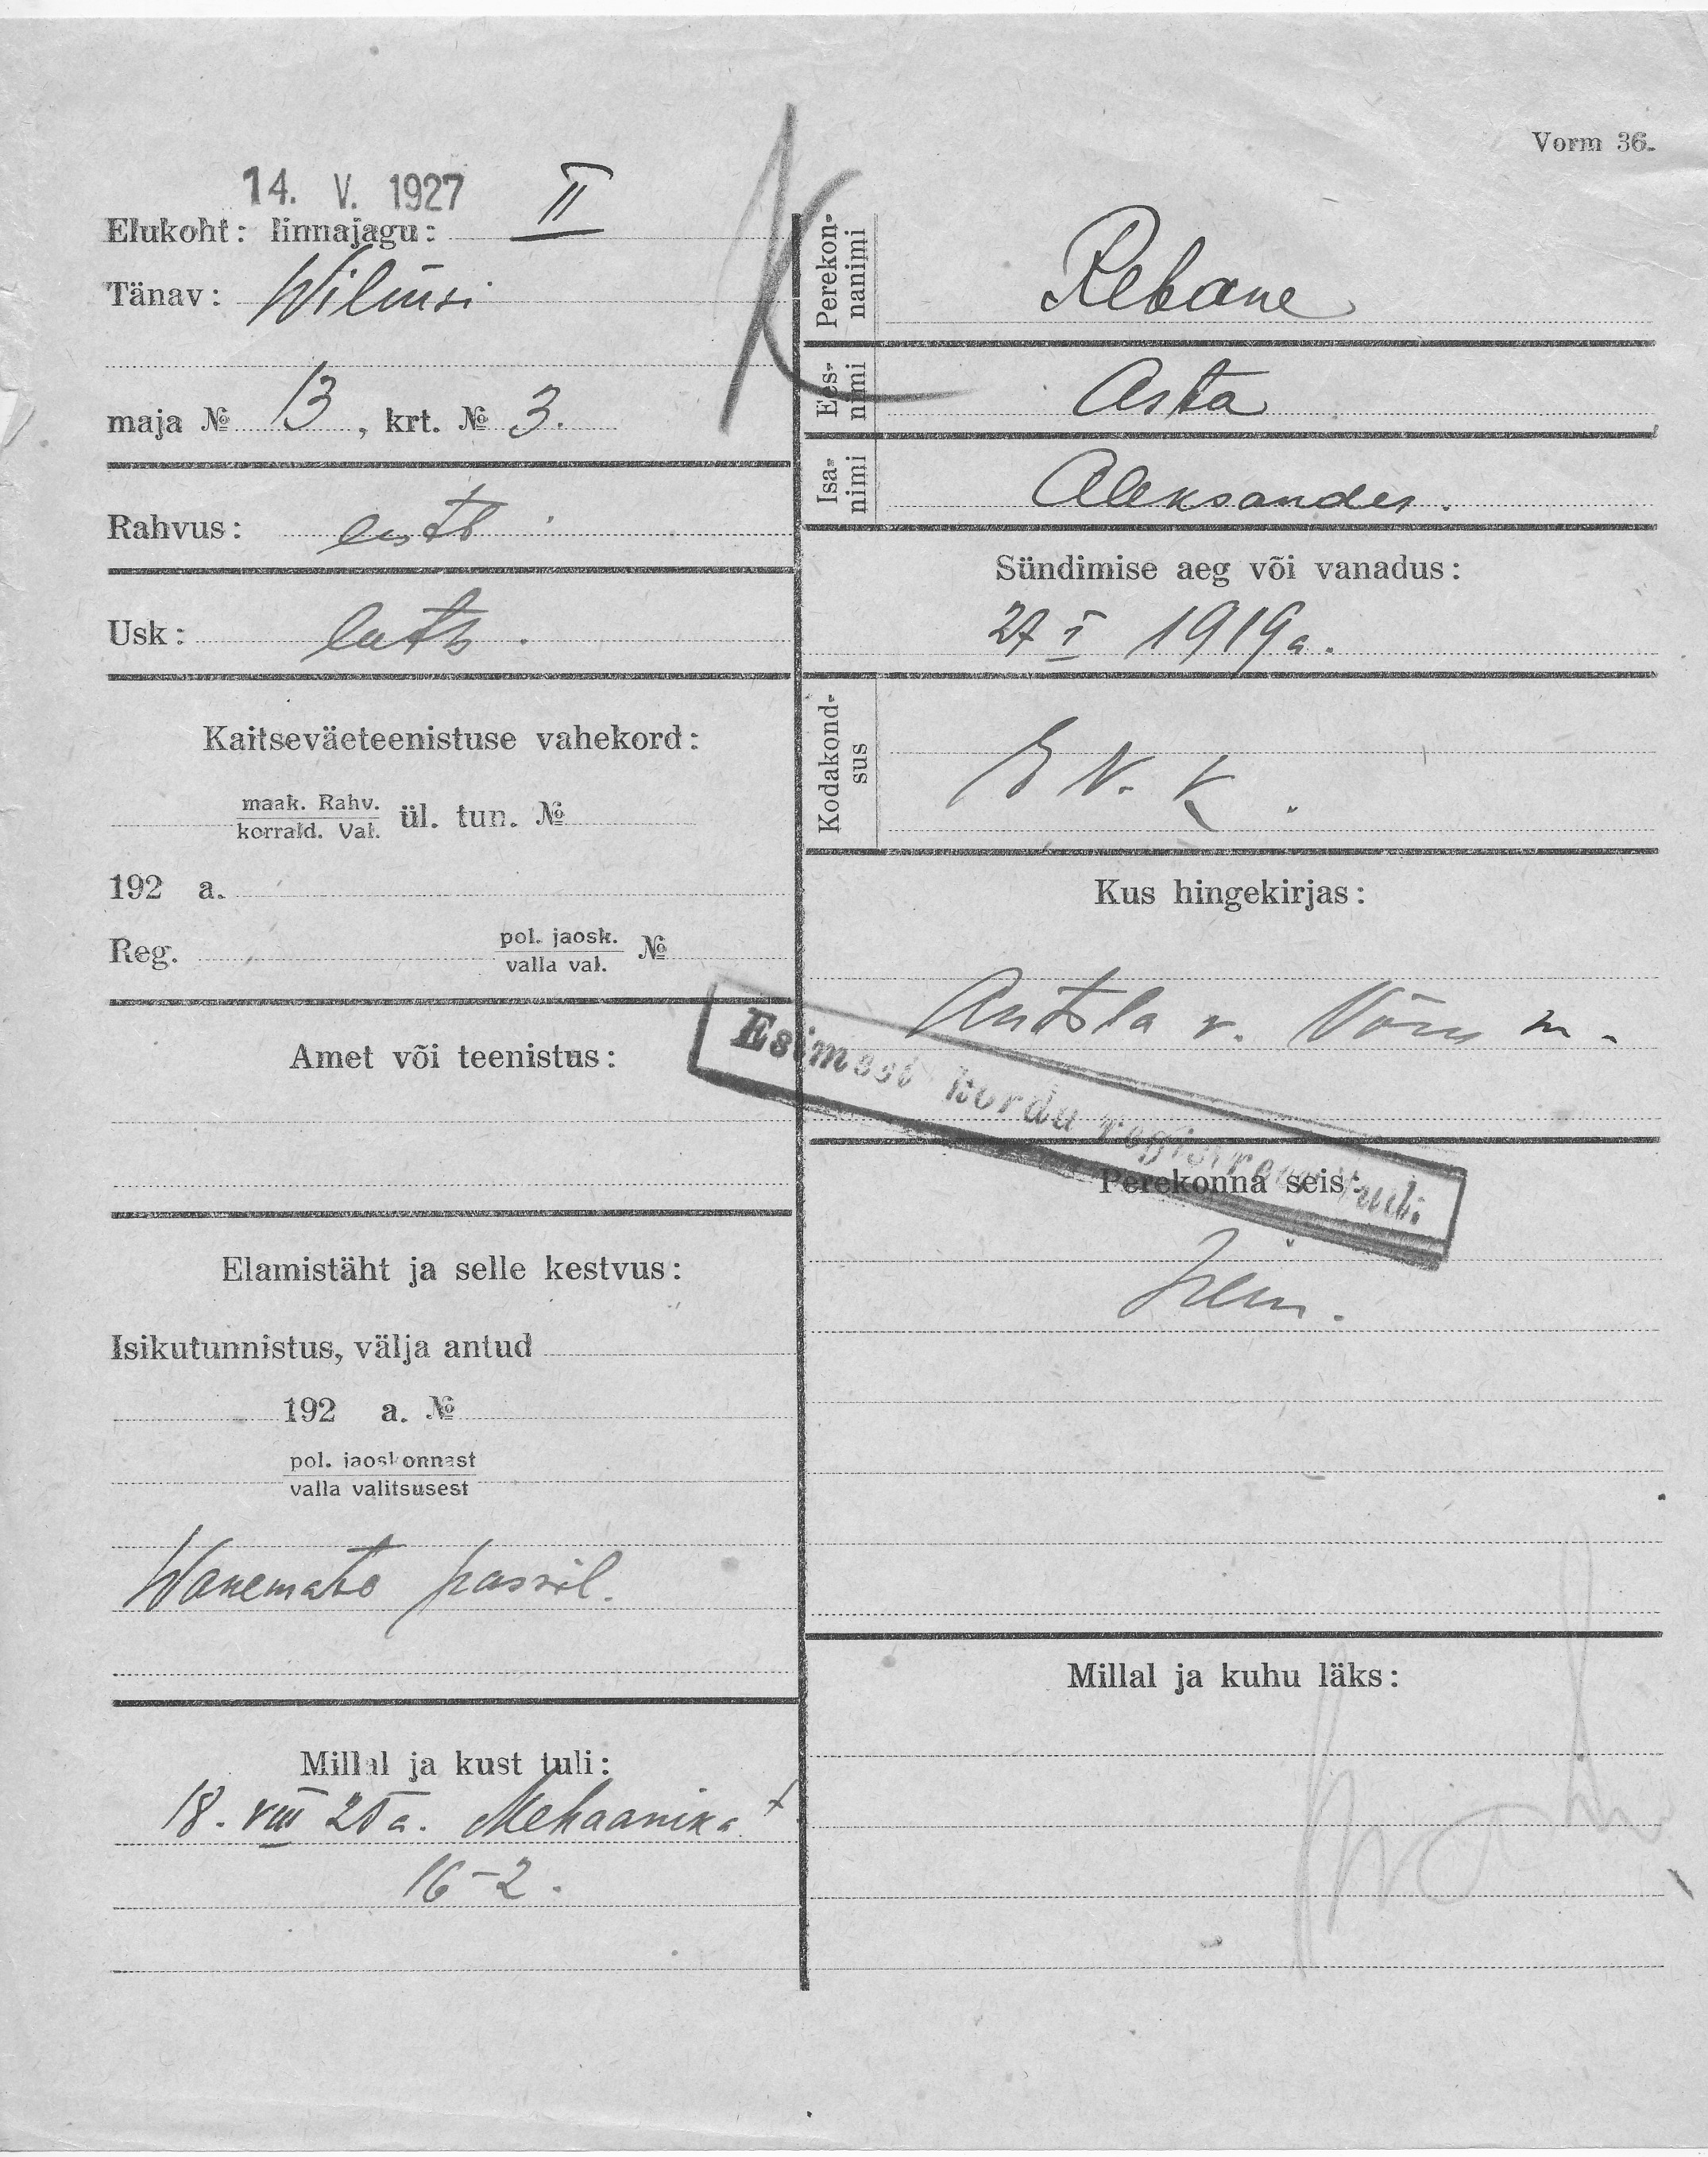 Vorm 36.
14. V. 1927
Elukoht: linnajagu: II
Tänav: Wilmsi
maja № 13, krt. № 3.
Rahvus: eestl.
Usk: luth.
Kaitseväeteenistuse vahekord:
maak. Rahv.
korrald. Val. ül. tun. №
192 a.
Reg. pol. jaosk.
valla val. №
Amet või teenistus:
Elamistäht ja selle kestvus:
Isikutunnistus, välja antud
192 a. №
pol. jaoskonnast
valla valitsusest
Wanemate passil.
Millal ja kust tuli:
18. VIII 25 a. Mehaanika t
16-2.
Perekon-
nanimi
Rebane
Ees-
nimi
Asta
Isa-
nimi
Aleksander.
Sündimise aeg või vanadus:
27 I 1919 a.
Kodakond-
sus
E V. K.
Kus hingekirjas:
Antsla v. Võru m.
Esimest korda registreeritud:
Perekonna seis:
Millal ja kuhu läks: